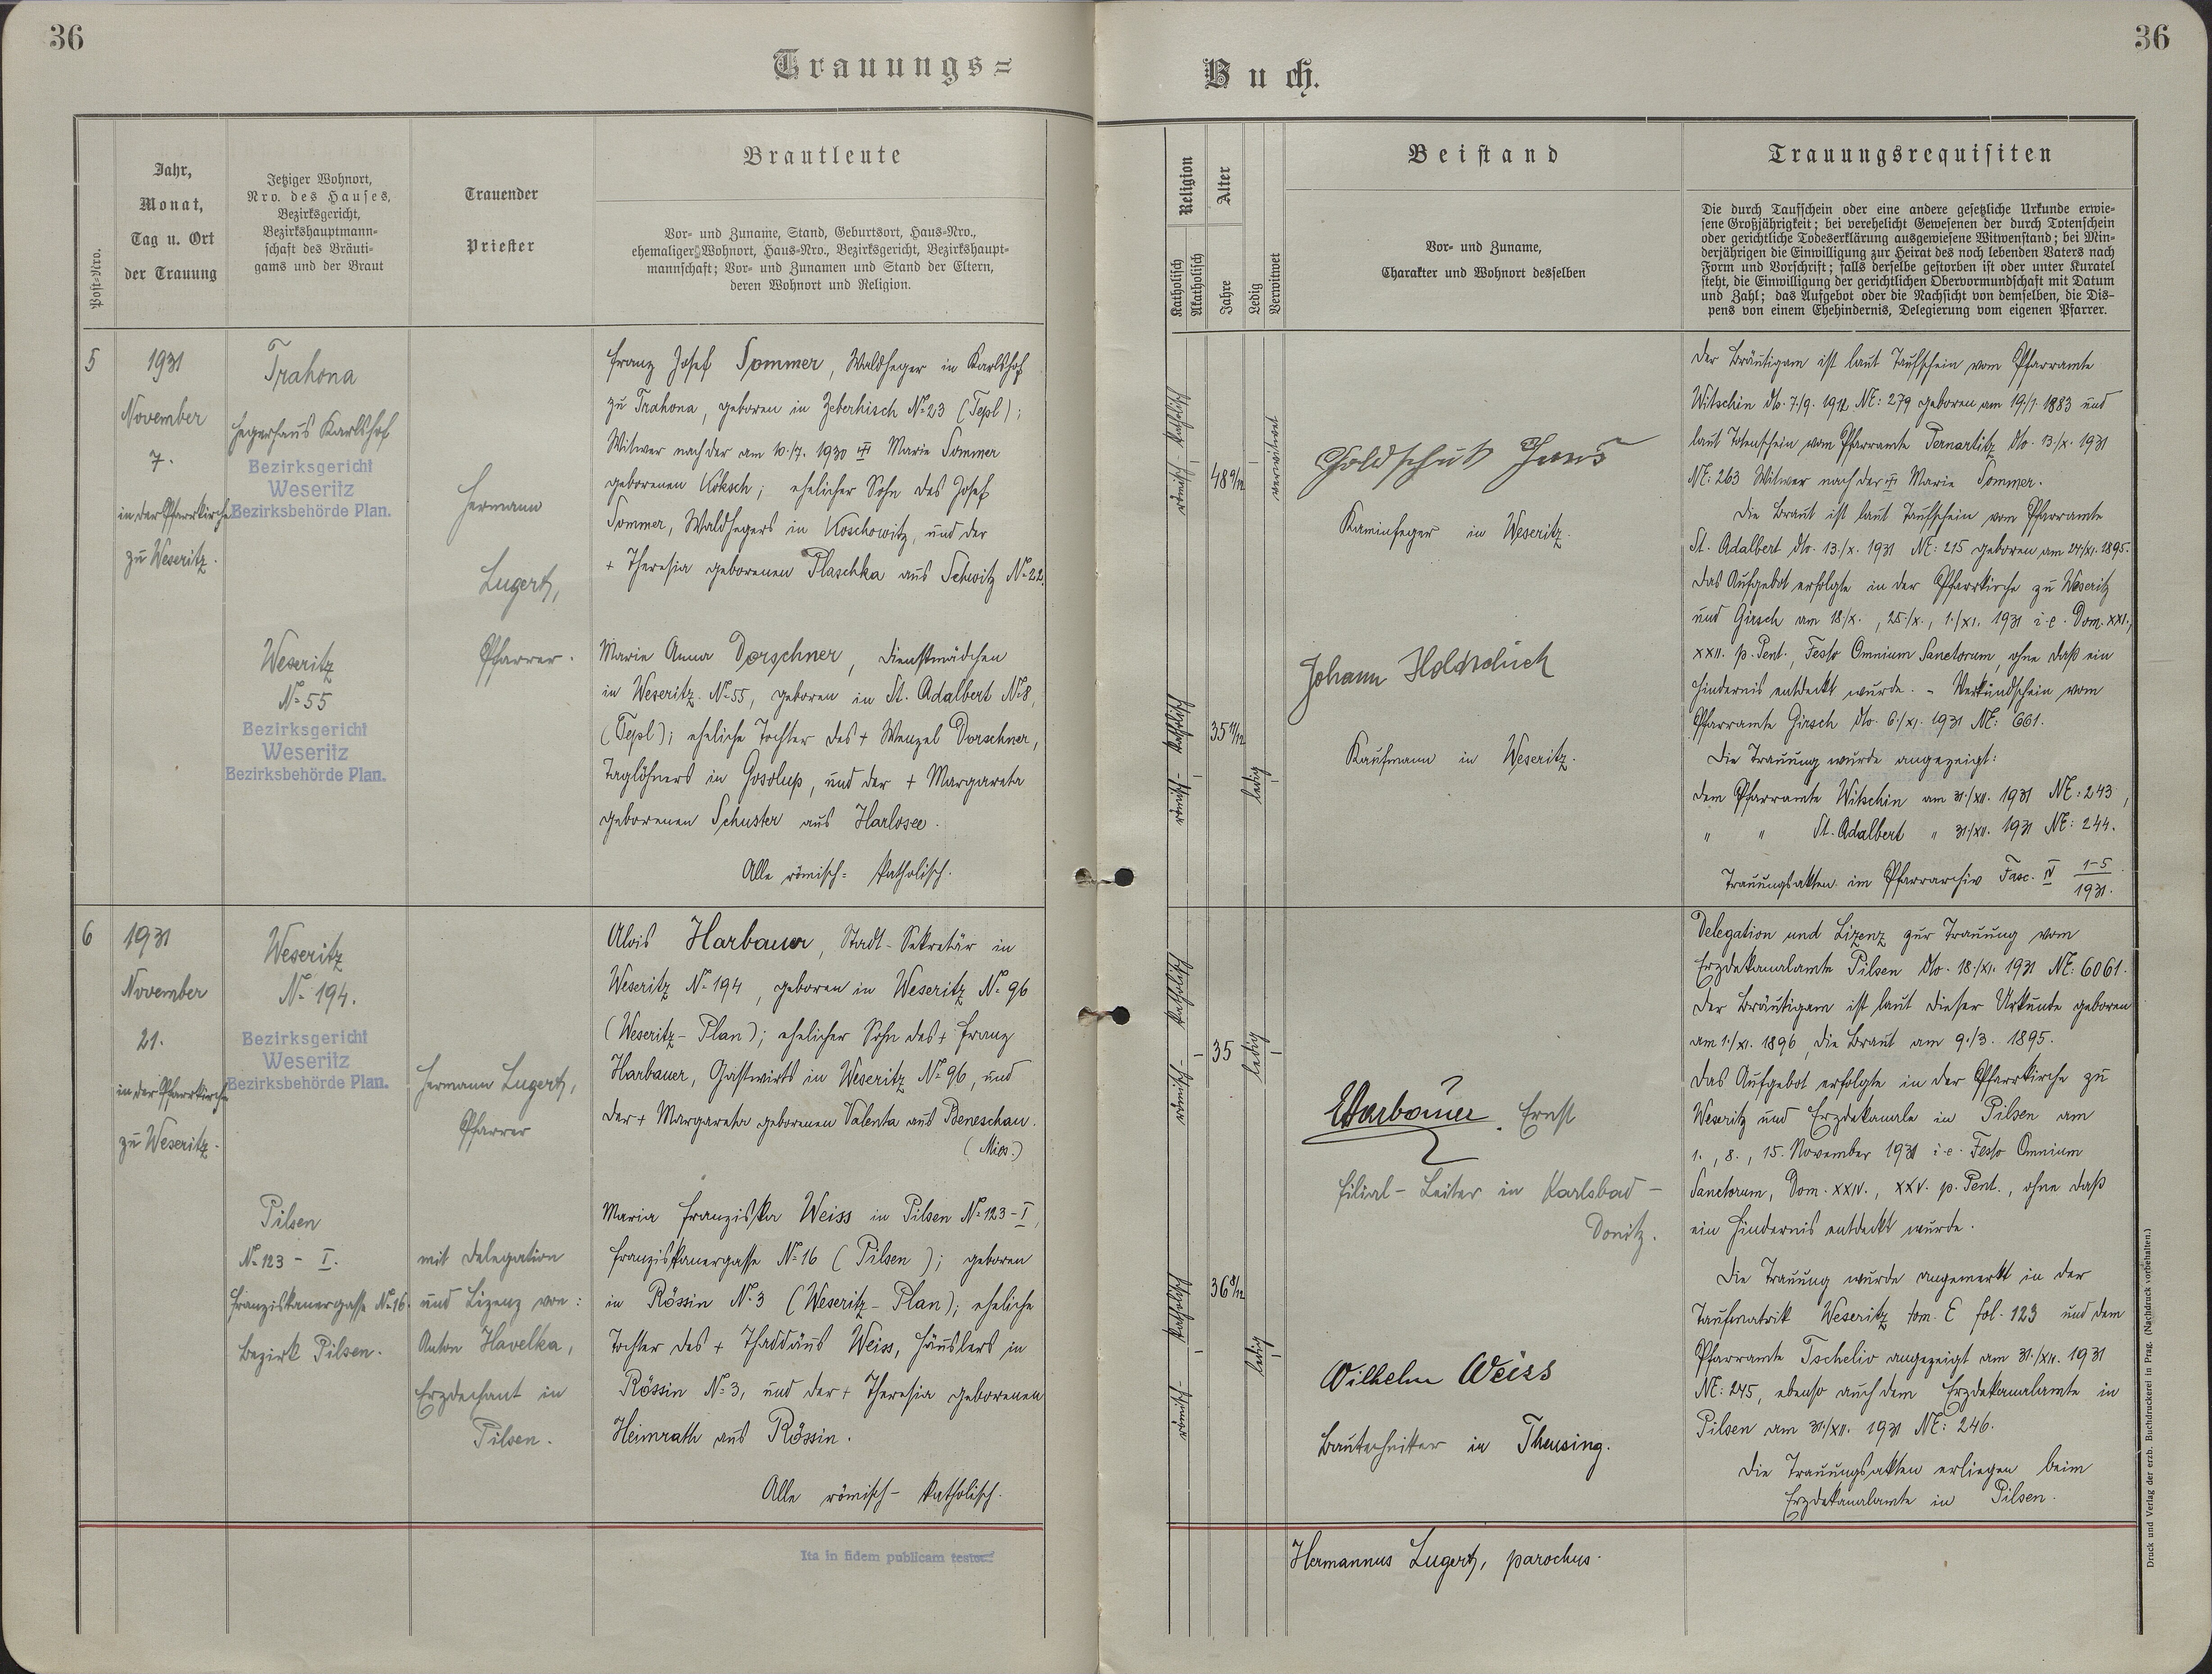 36
36
Trauungs=
Buch.
Post-Nro.
Jahr,
Monat,
Tag u. Ort
der Trauung
Jetziger Wohnort,
Nro. des Hauses,
Bezirksgericht,
Bezirkshauptmann-
schaft des Bräuti-
gams und der Braut
Trauender
Priester
Brautleute
Vor- und Zuname, Stand, Geburtsort, Haus-Nro.,
ehemaliger Wohnort, Haus-Nro., Bezirksgericht, Bezirkshaupt-
mannschaft; Vor- und Zunamen und Stand der Eltern,
deren Wohnort und Religion.
Religion
Katholisch
Akatholisch
Alter
Jahre
Ledig
Verwitwet
Beistand
Vor- und Zuname,
Charakter und Wohnort desselben
Trauungsrequisiten
Die durch Taufschein oder eine andere gesetzliche Urkunde erwie-
sene Großjährigkeit; bei verehelicht Gewesenen der durch Totenschein
oder gerichtliche Todeserklärung ausgewiesene Witwenstand; bei Min-
derjährigen die Einwilligung zur Heirat des noch lebenden Vaters nach
Form und Vorschrift; falls derselbe gestorben ist oder unter Kuratel
steht, die Einwilligung der gerichtlichen Obervormundschaft mit Datum
und Zahl; das Aufgebot oder die Nachsicht von demselben, die Dis-
pens von einem Ehehindernis, Delegierung vom eigenen Pfarrer.
5
1931
November
7.
in der Pfarrkirche
zu Weseritz.
Trahona
Hegerhaus Karlshof
Bezirksgericht
Weseritz
Bezirksbehörde Plan.
Weseritz
No 55
Bezirksgericht
Weseritz
Bezirksbehörde Plan.
Hermann
Lugert,
Pfarrer.
Franz Josef Sommer, Waldheger in Karlshof
zu Trahona, geboren in Zeberhisch No 23 (Tepl);
Witwer nach der am 10./7. 1930 Marie Sommer
geborenen Koksch; ehelicher Sohn des Josef
Sommer, Waldhegers in Koschowitz, und der
+ Theresia geborenen Plaschka aus Schwitz No 22.
Marie Anna Dorschner, Dienstmädchen
in Weseritz No 55, geboren in St. Adalbert No 8,
(Tepl); eheliche Tochter des + Wenzel Dorschner,
Taglöhners in Gosolup, und der + Margareta
geborenen Schuster aus Harlosee.
Alle römisch-katholisch.
römisch-katholisch
48 9/12
verwitwet
römisch-katholisch
35 11/12
ledig
Kaminfeger in Weseritz.
Johann
Kaufmann in Weseritz.
Der Bräutigam ist laut Taufschein vom Pfarramte
Witschin dto. 7./9. 1912 NE: 279 geboren am 19/1. 1883 und
laut Totenschein vom Pfarramte Pernartitz dto. 13./X. 1931
NE: 263 Witwer nach der Marie Sommer.
Die Braut ist laut Taufschein vom Pfarramte
St. Adalbert dto. 13./X. 1931 NE: 215 geboren am 24/XI. 1895.
Das Aufgebot erfolgte in der Pfarrkirche zu Weseritz
und Girsch am 18/X., 25./X., 1./XI. 1931 i. e. Dom. XXI.,
XXII. p. Pent., Festo Omnium Sanctorum, ohne daß ein
Hindernis entdeckt wurde. - Verkündschein vom
Pfarramte Girsch dto. 6./XI. 1931 NE: 661.
Die Trauung wurde angezeigt:
dem Pfarramte Witschin am 31./XII. 1931 NE: 243,
" " St. Adalbert " 31/XII. 1931 NE: 244.
Trauungsakten im Pfarrarchiv Fasc. IV 1-5/1931.
6
1931
November
21.
in der Pfarrkirche
zu Weseritz.
Weseritz
No 194.
Bezirksgericht
Weseritz
Bezirksbehörde Plan.
Pilsen
No 123 - I.
Franziskanergasse No 16.
Bezirk Pilsen.
Hermann Lugert,
Pfarrer
mit Delegation
und Lizenz von:
Anton Havelka,
Erzdechant in
Pilsen.
Alois Harbauer, Stadt-Sekretär in
Weseritz No 194, geboren in Weseritz No 96
(Weseritz-Plan); ehelicher Sohn des + Franz
Harbauer, Gastwirts in Weseritz No 96, und
der + Margareta geborenen Valenta aus Beneschau.
(Mies.)
Maria Franziska Weiss in Pilsen No 123-I,
Franziskanergasse No 16 (Pilsen); geboren
in Rössin No 3 (Weseritz-Plan); eheliche
Tochter des + Thaddäus Weiss, Häuslers in
Rössin No 3, und der + Theresia geborenen
Heimrath aus Rössin.
Alle römisch-katholisch.
römisch-katholisch
35
ledig
römisch-katholisch
36 8/12
ledig
Harbauer Ernst
Filial-Leiter in Karlsbad-
Donitz.
Wilhelm Weiss
Bautechniker in Theusing.
Delegation und Lizenz zur Trauung vom
Erzdekanalamte Pilsen dto. 18./XI. 1931 NE: 6061.
Der Bräutigam ist laut dieser Urkunde geboren
am 1./XI. 1896, die Braut am 9./3. 1895.
Das Aufgebot erfolgte in der Pfarrkirche zu
Weseritz und Erzdekanale in Pilsen am
1., 8., 15. November 1931 i. e. Festo Omnium
Sanctorum, Dom. XXIV., XXV. p. Pent., ohne daß
ein Hindernis entdeckt wurde.
Die Trauung wurde angemerkt in der
Taufmatrik Weseritz tom. E fol. 123 und dem
Pfarramte Tscheliv angezeigt am 31./XII. 1931
NE: 245, ebenso auch dem Erzdekanalamte in
Pilsen am 31/XII. 1931 NE: 246.
Die Trauungsakten erliegen beim
Erzdekanalamte in Pilsen.
Ita in fidem publicam testor:
Hermannus Lugert, parochus.
Druck und Verlag der erzb. Buchdruckerei in Prag. (Nachdruck vorbehalten.)